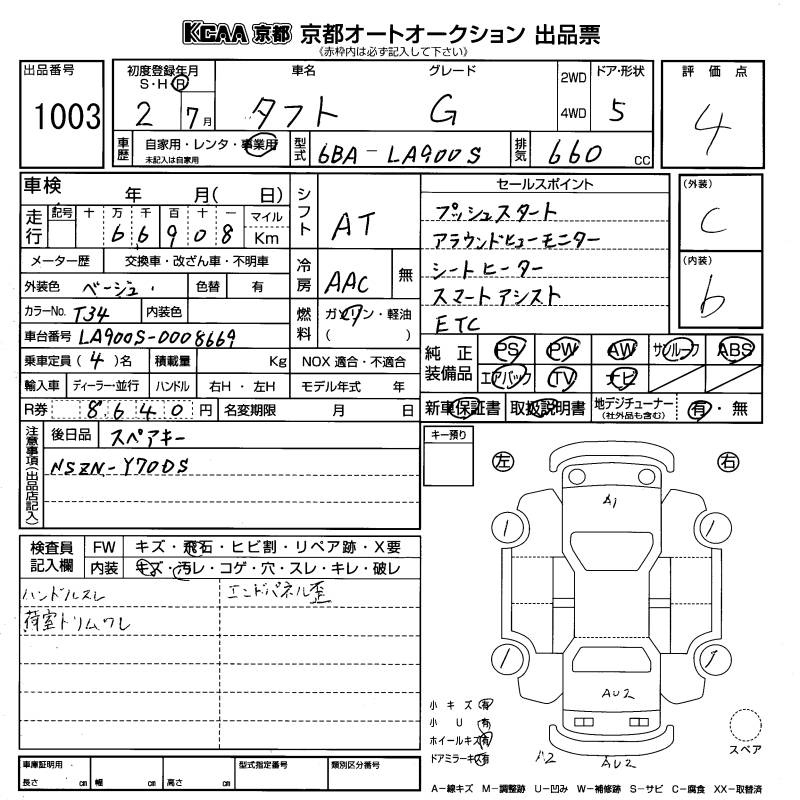 KCAA 京都 京都オートオークション 出品票
《赤枠内は必ず記入して下さい》
出品番号 1003
初度登録年月 S・H・R 2 7月
車名 タフト
グレード G
2WD 4WD
ドア・形状 5
評価点 4
車歴 自家用・レンタ・事業用
未記入は自家用
型式 6BA-LA900S
排気 660 cc
車検 年 月( 日)
シフト AT
走行 記号 十 万 千 百 十 一 マイル
6 6 9 0 8 Km
メーター歴 交換車・改ざん車・不明車
冷房 AAC 無
外装色 ベージュ 色替 有
カラーNo. T34 内装色
燃料 ガソリン・軽油
( )
車台番号 LA900S-0008669
乗車定員 (4)名 積載量 Kg NOX 適合・不適合
輸入車 ディーラー・並行 ハンドル 右H・左H モデル年式 年
R券 8640円 名変期限 月 日
セールスポイント
プッシュスタート
アラウンドビューモニター
シートヒーター
スマートアシスト
ETC
(外装) C
(内装) b
純正装備品 PS PW AW サンルーフ ABS
エアバック TV ナビ
新車保証書 取扱説明書 地デジチューナー (社外品も含む) 有・無
注意事項(出品店記入)
後日品 スペアキー
NSZN-Y70DS
キー預り
左 右
検査員記入欄
FW キズ・飛石・ヒビ割・リペア跡・X要
内装 キズ・汚レ・コゲ・穴・スレ・キレ・破レ
ハンドルスレ エンドパネル歪
荷室トリムワレ
A1
1 1
1 1
AU2
小キズ 有
小U 有
ホイールキズ 有
ドアミラーキズ 有
A2 AU2
スペア
車庫証明用 長さ cm 幅 cm 高さ cm
型式指定番号 類別区分番号
A-線キズ M-調整跡 U-凹み W-補修跡 S-サビ C-腐食 XX-取替済